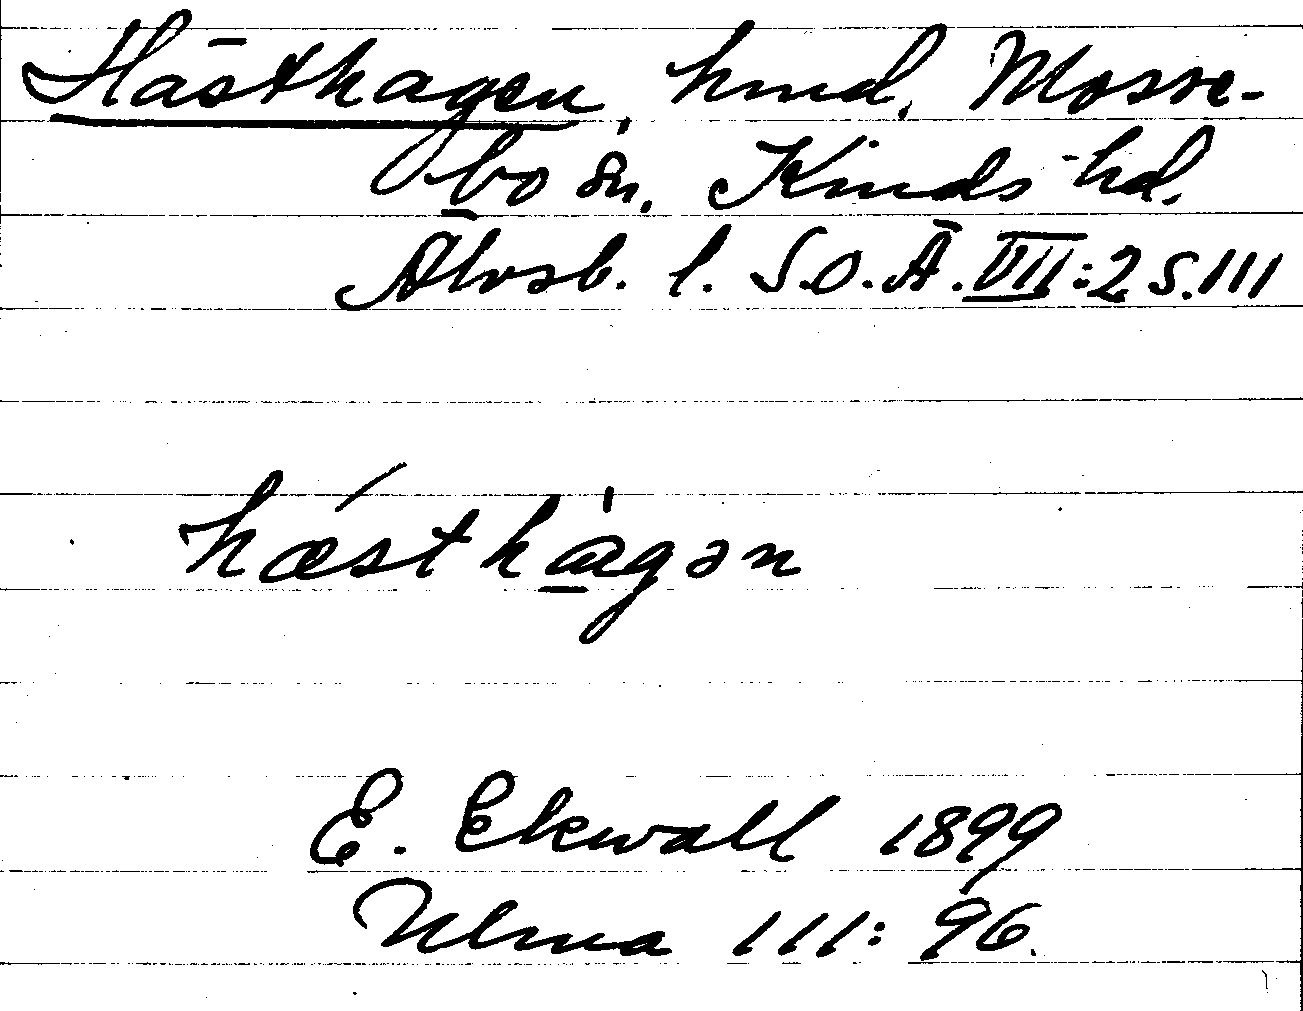 Hästhagen, hmd, Mosse-
bo sn. Kinds hd.
Älvsb. l. S.O.Ä. VII:2 S.111
hæsthagən
E. Ekwall 1899
Ulma 111: 96.